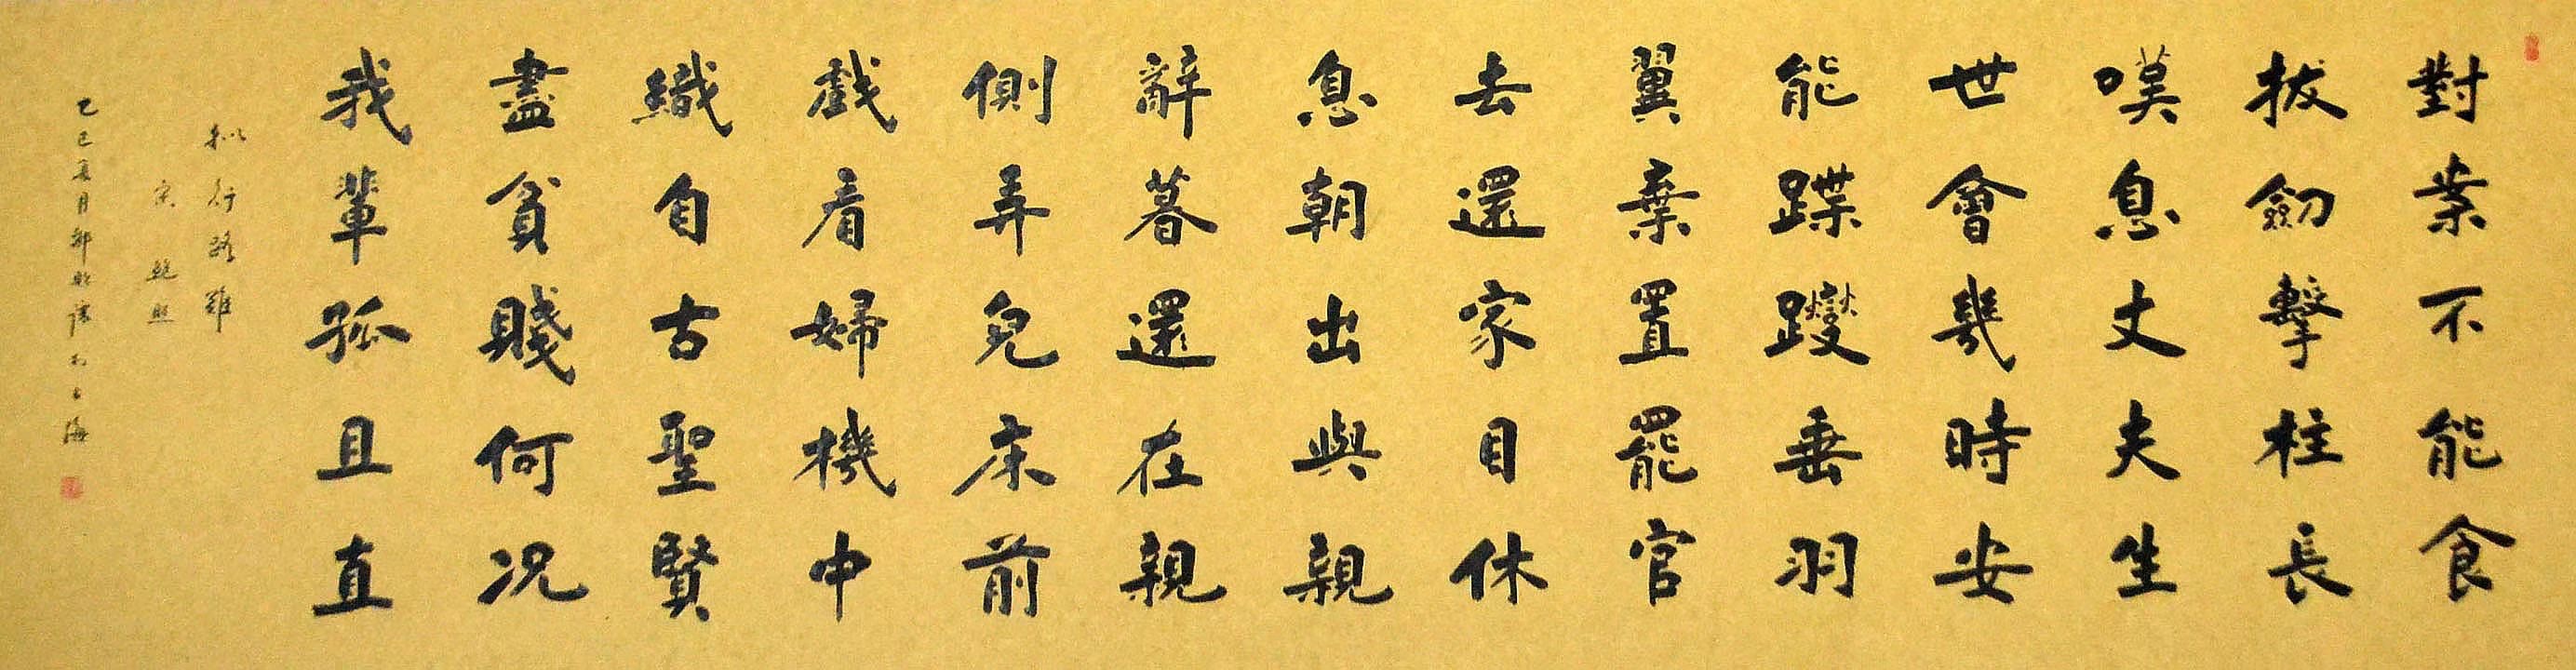 對案不能食
拔劒擊柱長
嘆息丈夫生
世會幾時安
能蹀躞垂羽
翼棄置罷官
去還家自休
息朝出與親
辭暮還在親
側弄兒床前
戲看婦機中
織自古聖賢
盡貧賤何況
我輩孤且直
擬行路難
宋 鮑照
乙巳
月
海